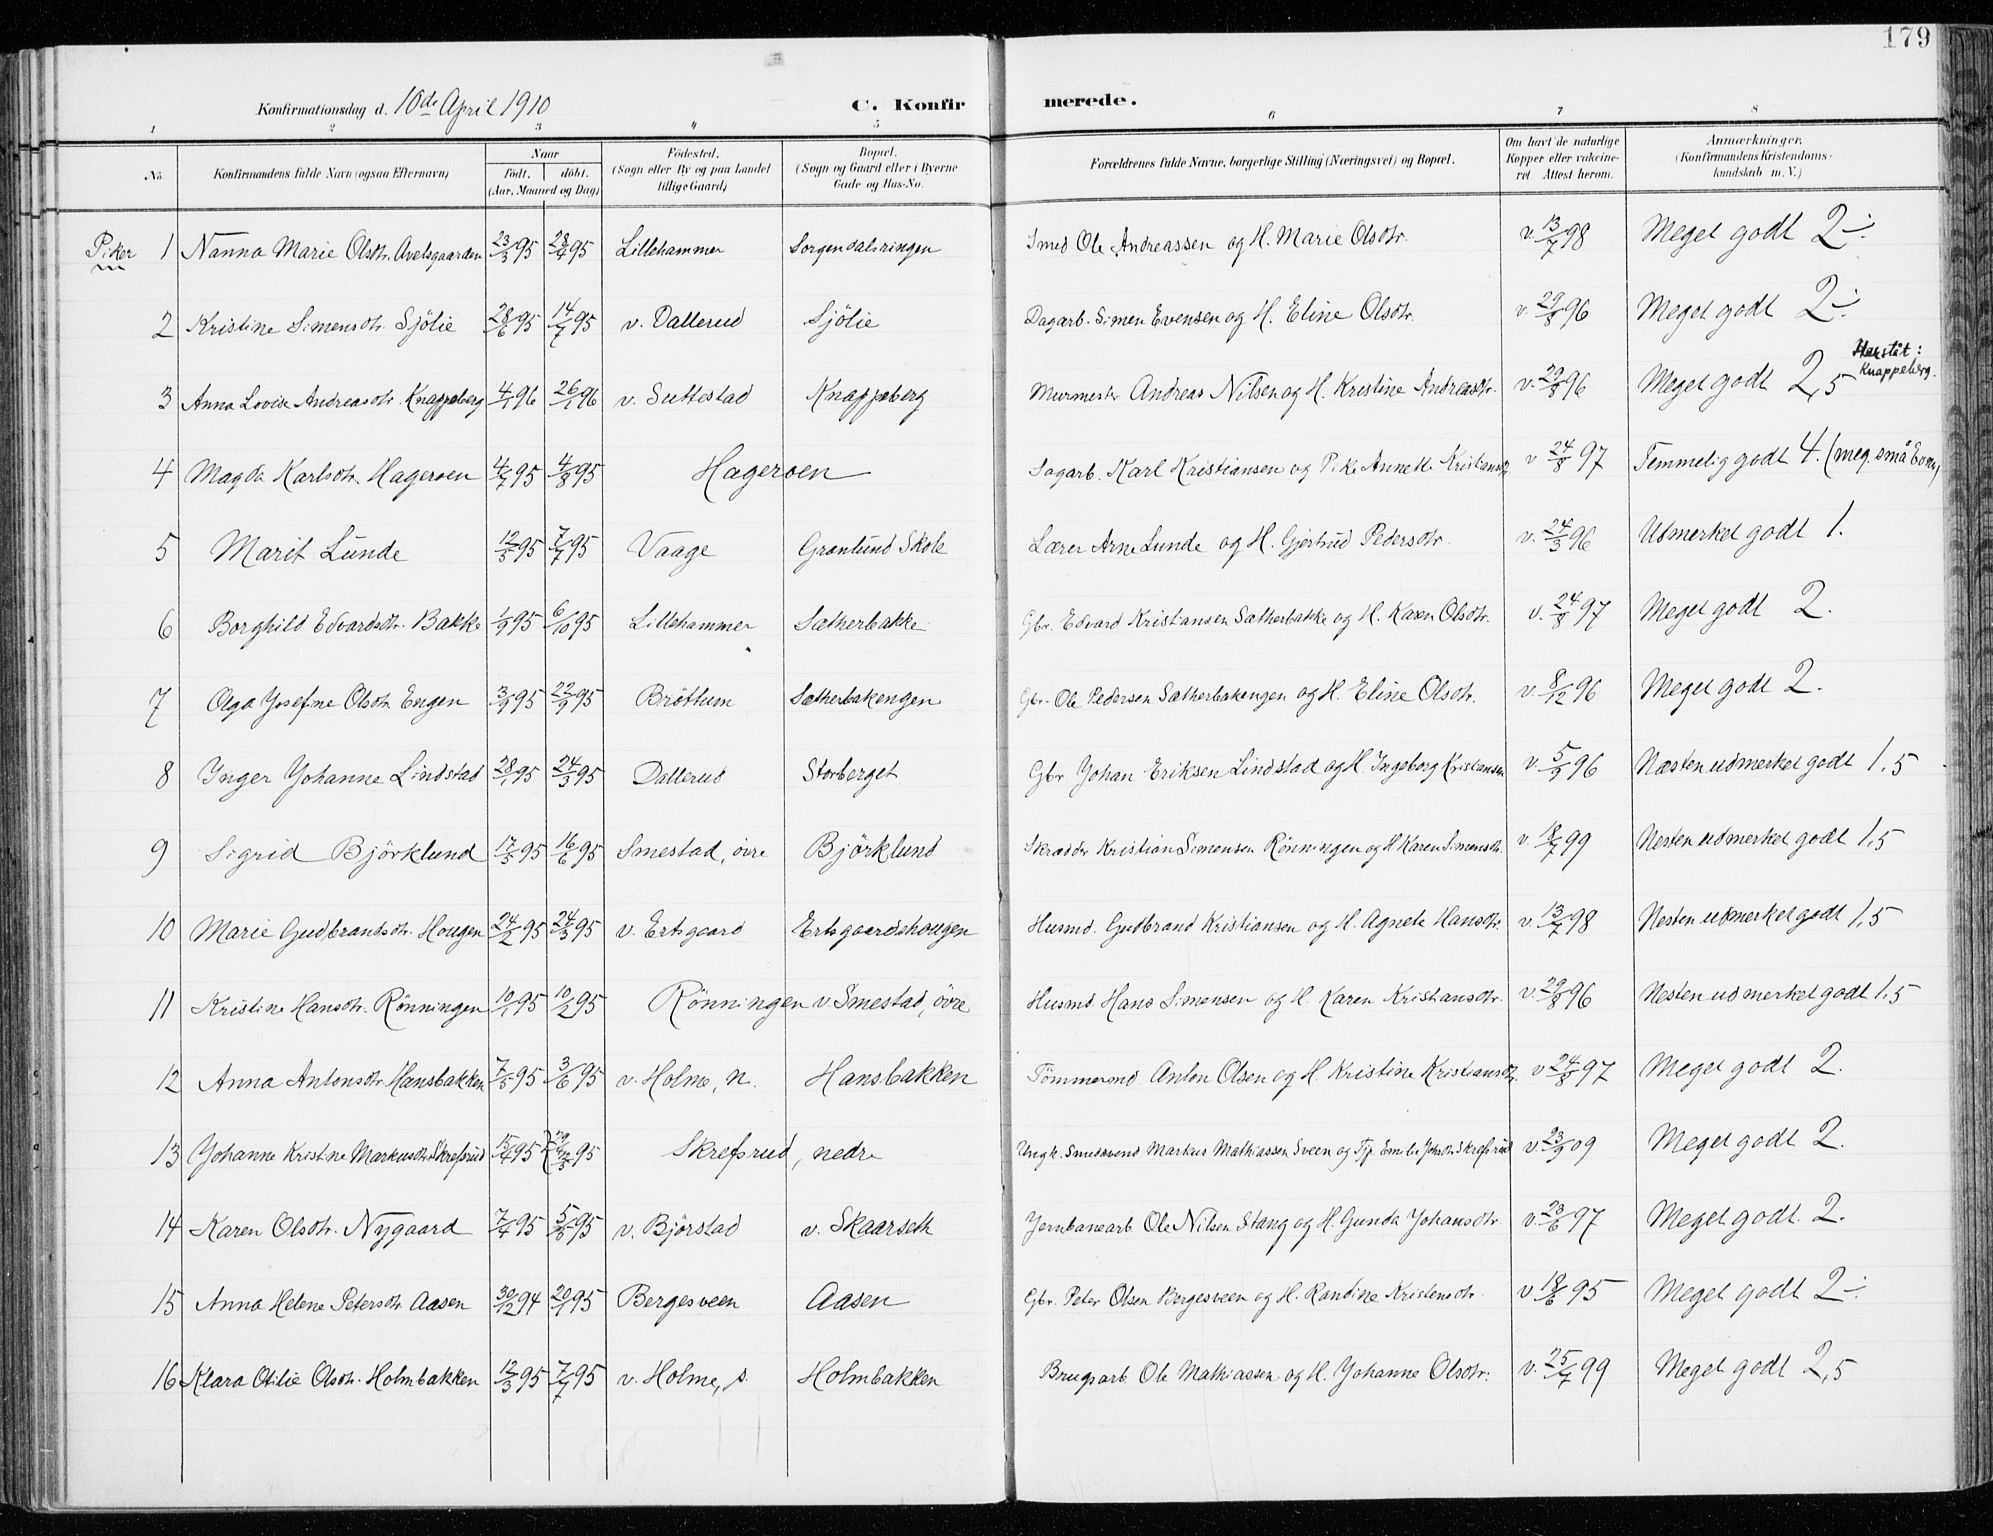 179
Konfirmationsdag d. 10de April 1910
C. Konfir merede.
1 2 3 4 5 6 7 8
No. Konfirmandens fulde Navn (ogsaa Efternavn) Naar født. døbt. (Aar, Maaned og Dag) Fødested. (Sogn eller By og paa Landet tillige Gaard) Bopæl. (Sogn og Gaard eller i Byerne Gade og Hus-No. Forældrenes fulde Navne, borgerlige Stilling (Næringsvei) og Bopæl. Om havt de naturlige Kopper eller vaccineret Attest herom. Anmærkninger. (Konfirmandens Kristendomskundskab m. V.)
Piker 1 Nanna Marie Olsdtr. Avelsgaarden 23/3 95 28/4 95 Lillehammer Sorgendalsringen Smed Ole Andreassen og H. Marie Olsdtr. v. 13/7 98 Meget godt 2÷
2 Kristine Simensdtr. Sjölie 28/6 95 14/7 95 v. Dallerud Sjölie Dagarb. Simen Evensen og H. Eline Olsdtr. v. 29/8 96 Meget godt 2÷
3 Anna Lovise Andreasdtr. Knappeberg 4/1 96 26/1 96 v. Suttestad Knappeberg Murmester Andreas Nilsen og H. Kristine Andreasdtr. v. 29/8 96 Meget godt 2,5 Knappeberg.
4 Magda Karlsdtr. Hageroen 4/7 95 4/8 95 Hageroen Sagarb. Karl Kristiansen og Pike Annette Kristiansdtr v 24/8 97 Temmelig godt 4. (meg. små Evner)
5 Marit Lunde 12/5 95 7/7 95 Vaage Grønlund Skole Lærer Arne Lunde og H. Gjertrud Pedersdtr. v. 24/3 96 Udmerket godt 1.
6 Borghild Edvardsdtr. Bakke 1/9 95 6/10 95 Lillehammer Sætherbakke Gbr. Edvard Kristiansen Sætherbakke og H. Karen Olsdtr. v. 24/8 97 Meget godt 2.
7 Olga Josefine Olsdtr Engen 3/9 95 22/9 95 Brøttum Sætherbakengen Gbr. Ole Pedersen Sætherbakengen og H. Eline Olsdtr. v. 8/12 96 Meget godt 2.
8 Inger Johanne Lindstad 28/1 95 24/3 95 Dallerud Storberget Gbr Johan Eriksen Lindstad og H. Ingeborg Kristiansen v. 5/9 96 Næsten udmerket godt 1,5
9 Sigrid Björklund 17/5 95 16/6 95 Smestad, övre Björklund Skrædder Kristian Simensen Rönningen og H Karen Simensdtr. v. 18/7 99 Nesten udmerket godt 1,5
10 Marie Gudbrandsdtr. Hougen 24/2 95 24/3 95 v. Ertsgaard Ertsgaardshougen Husmd. Gudbrand Kristiansen og H. Agnete Hansdtr. v. 13/7 98 Nesten udmerket godt 1,5
11 Kristine Hansdtr. Rönningen 10/1 95 10/2 95 Rönningen v. Smestad, övre Husmd. Hans Simensen og H. Karen Kristiansdtr. v. 29/8 96 Nesten udmerket godt 1,5
12 Anna Antonsdtr. Hansbakken 7/5 95 3/6 95 v. Holme, n. Hansbakken Tömmermd. Anton Olsen og H. Kristine Kristiansdtr. v 24/8 97 Meget godt 2.
13 Johanne Kristine Markusdtr. Skrefsrud 15/4 95 95 Skrefsrud, nedre Ungk. Smedsvend Markus Mathiassen Sveen og Tjp. Emilie Johsdtr Skrefsrud v. 23/9 09 Meget godt 2.
14 Karen Olsdtr. Nygaard 7/4 95 5/5 95 v. Björstad v. Skaarseth Jernbanearb Ole Nilsen Stang og H. Gunda Johansdtr. v. 23/6 97 Meget godt 2.
15 Anna Helene Petersdtr Aasen 30/12 94 20/1 95 Bergesveen Aasen Gbr. Peter Olsen Bergesveen og H. Randine Kristensdtr. v. 18/6 95 Meget godt 2÷
16 Klara Otilie Olsdtr. Holmbakken 12/3 95 7/7 95 v. Holme, s. Holmbakken Brugsarb Ole Mathiassen og H. Johanne Olsdtr: v. 25/7 99 Meget godt 2,5